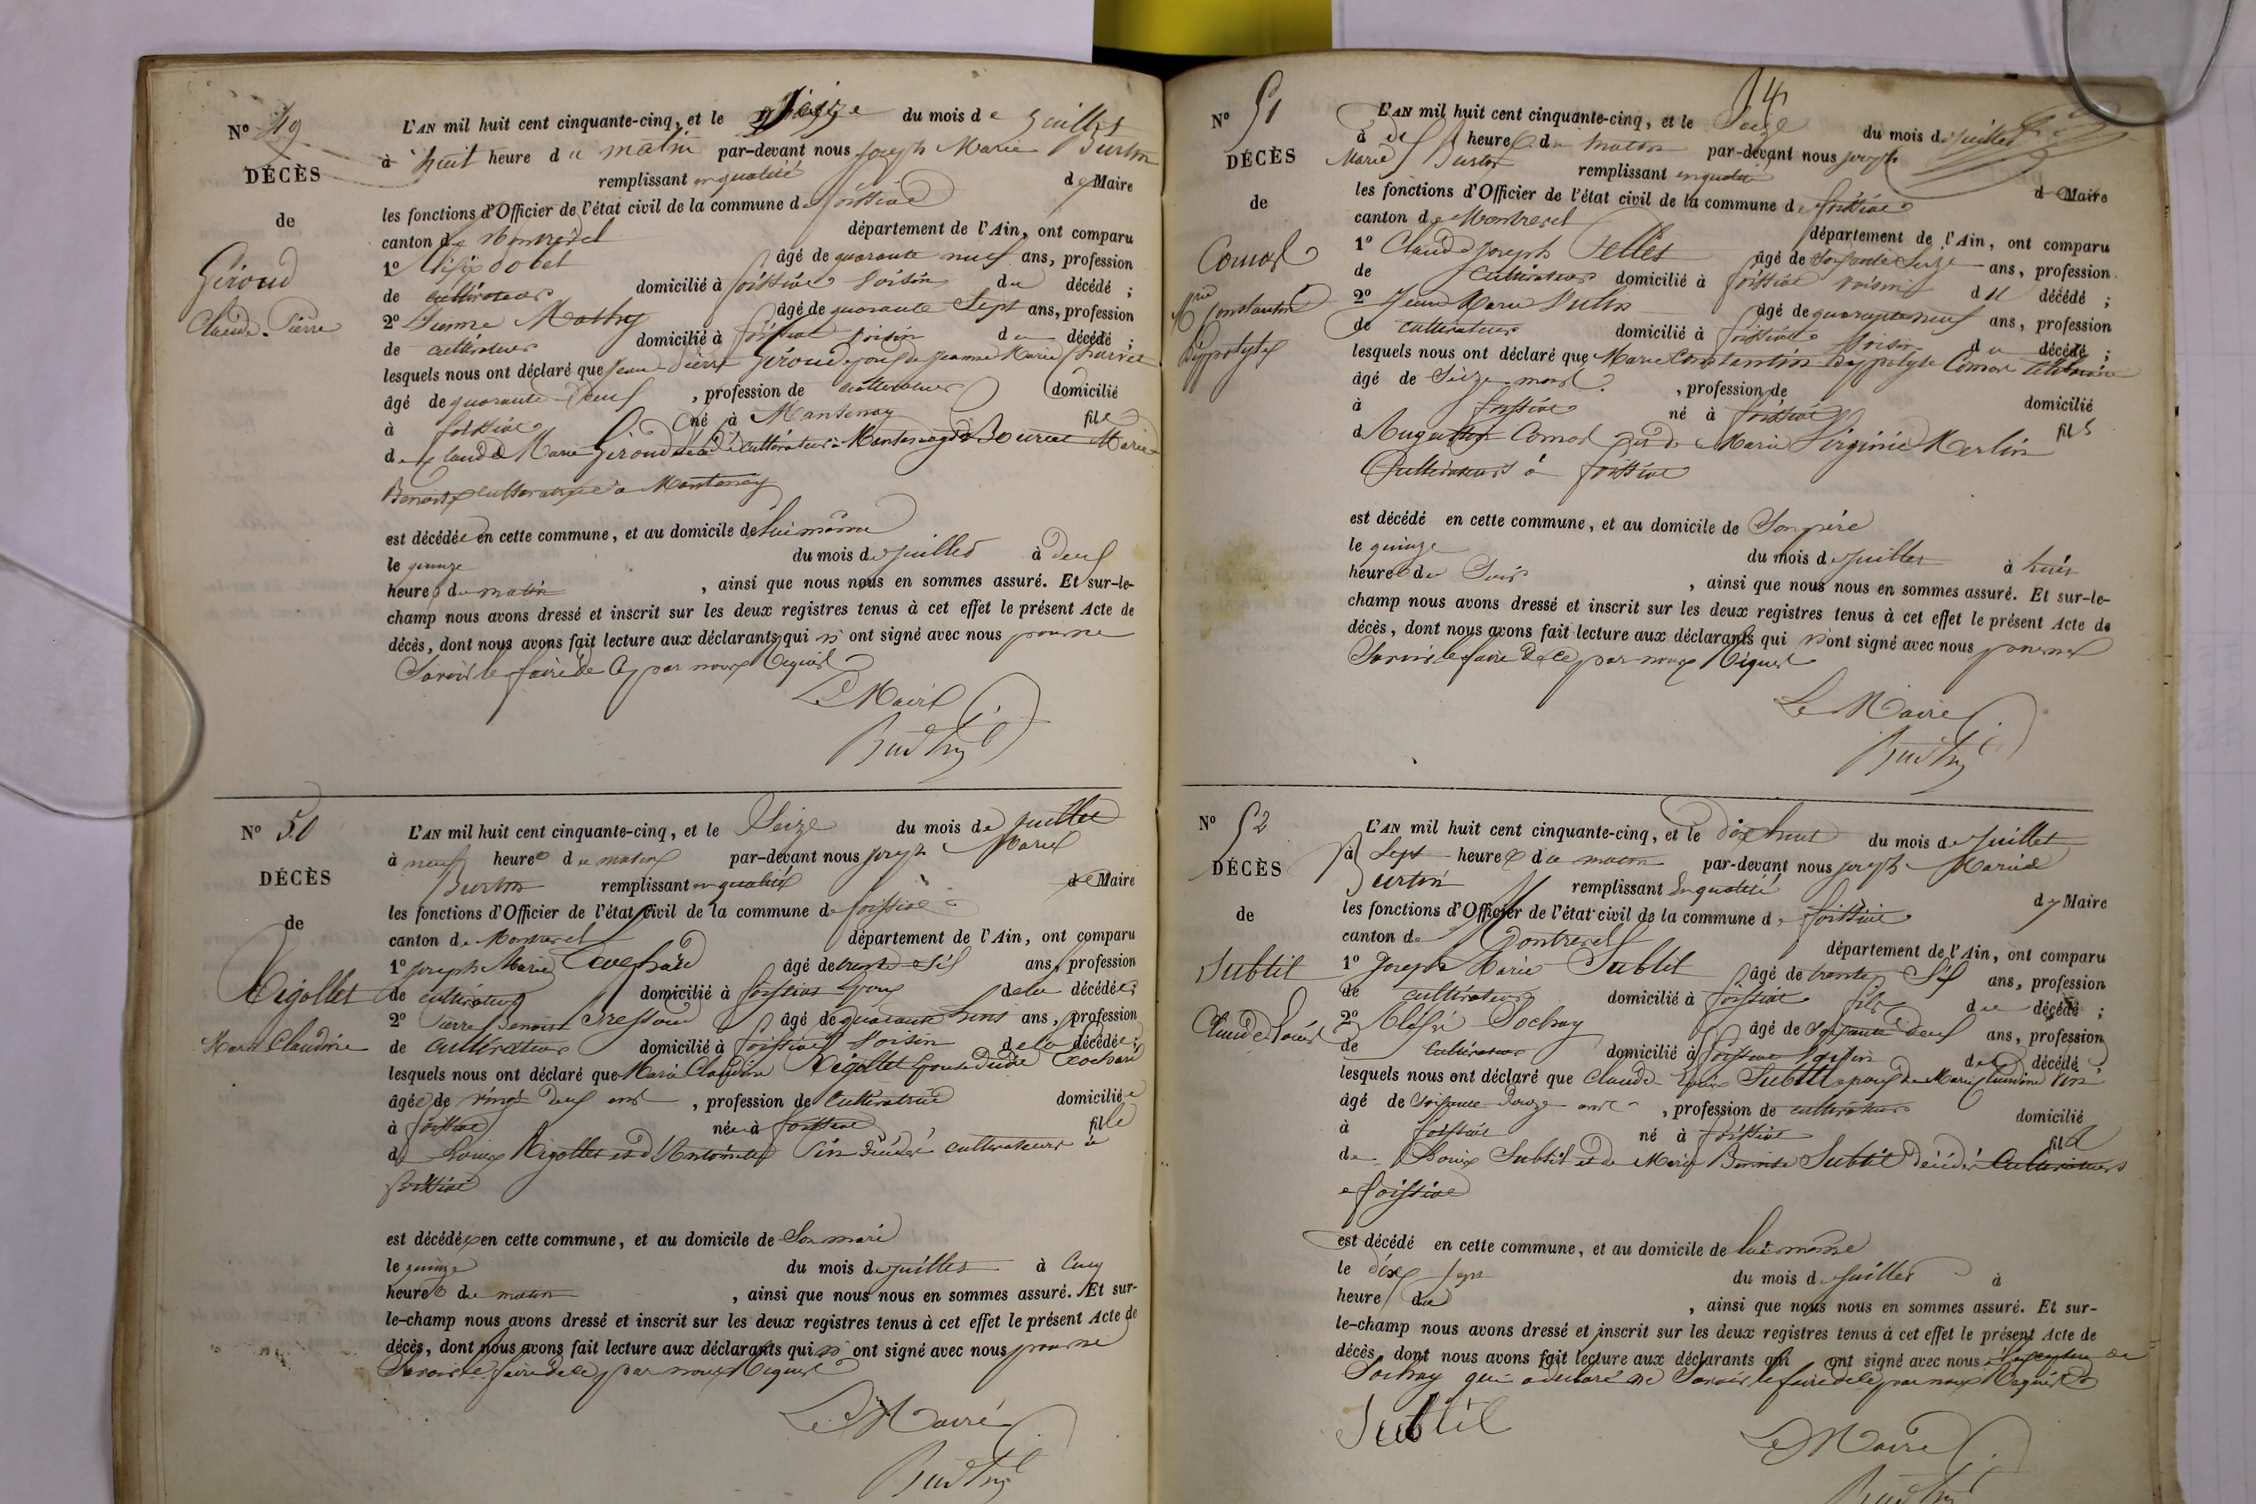 N° 49
DÉCÈS
de
Giroud
Claude Pierre
L'AN mil huit cent cinquante-cinq, et le Seize du mois de Juillet
à huit heure du matin par-devant nous Joseph Marie Burtin
remplissant en qualité de Maire
les fonctions d'Officier de l'état civil de la commune de foissiat
canton de Montrevel département de l'Ain, ont comparu
1° âgé de quarante neuf ans, profession
de cultivateur domicilié à foissiat voisin du décédé ;
2° âgé de quarante Sept ans, profession
de cultivateur domicilié à foissiat voisin du décédé ;
lesquels nous ont déclaré que Pierre Giroud époux de Jeanne Marie
âgé de quarante Deux , profession de cultivateur domicilié
à foissiat né à Mantenay fils
de Claude Marie Giroud décédé cultivateur à Mantenay et de Marie
Benoite cultivatrice à Mantenay
est décédé en cette commune, et au domicile de lui même
le quinze du mois de juillet à Deux
heure du matin , ainsi que nous nous en sommes assuré. Et sur-le-
champ nous avons dressé et inscrit sur les deux registres tenus à cet effet le présent Acte de
décès, dont nous avons fait lecture aux déclarants qui n'ont signé avec nous pour ne
Savoir le faire de ce par nous Requis
Le Maire
Burtin
N° 50
DÉCÈS
de
Rigollet
Marie Claudine
L'AN mil huit cent cinquante-cinq, et le Seize du mois de juillet
à neuf heure du matin par-devant nous joseph Marie
Burtin remplissant en qualité de Maire
les fonctions d'Officier de l'état civil de la commune de foissiat
canton de Montrevel département de l'Ain, ont comparu
1° joseph Marie âgé de trente Six ans, profession
de cultivateur domicilié à foissiat époux de la décédée ;
2° Pierre Benoit âgé de quarante ans, profession
de cultivateur domicilié à foissiat voisin de la décédée ;
lesquels nous ont déclaré que Marie Claudine Rigollet épouse dudit
âgée de vingt Deux ans , profession de cultivatrice domiciliée
à foissiat née à foissiat fille
de Louis Rigollet et d'Antoinette Pin décédés cultivateurs à
foissiat
est décédée en cette commune, et au domicile de Son mari
le quinze du mois de juillet à Cinq
heure du matin , ainsi que nous nous en sommes assuré. Et sur-
le-champ nous avons dressé et inscrit sur les deux registres tenus à cet effet le présent Acte de
décès, dont nous avons fait lecture aux déclarants qui n'ont signé avec nous pour ne
Savoir le faire de ce par nous Requis
Le Maire
Burtin
14
N° 51
DÉCÈS
de
Comas
Constantin
hyppolyte
L'AN mil huit cent cinquante-cinq, et le Seize du mois de juillet
à dix heure du matin par-devant nous joseph
Marie Burtin remplissant en qualité de Maire
les fonctions d'Officier de l'état civil de la commune de foissiat
canton de Montrevel département de l'Ain, ont comparu
1° Claude joseph âgé de Soixante Seize ans, profession
de cultivateur domicilié à foissiat voisin du décédé ;
2° Jean Marie âgé de quarante neuf ans, profession
de cultivateur domicilié à foissiat voisin du décédé ;
lesquels nous ont déclaré que Marie Constantin hyppolyte Comas
âgé de Seize mois , profession de domicilié
à foissiat né à foissiat fils
d'Auguste Comas et de Marie Virginie Merlin
Cultivateurs à foissiat
est décédé en cette commune, et au domicile de Son père
le quinze du mois de juillet à huit
heure du Soir , ainsi que nous nous en sommes assuré. Et sur-le-
champ nous avons dressé et inscrit sur les deux registres tenus à cet effet le présent Acte de
décès, dont nous avons fait lecture aux déclarants qui n'ont signé avec nous pour ne
Savoir le faire de ce par nous Requis
Le Maire
Burtin
N° 52
DÉCÈS
de
Subtil
Claude Louis
L'AN mil huit cent cinquante-cinq, et le dix huit du mois de juillet
à Sept heure du matin par-devant nous joseph Marie
Burtin remplissant En qualité de Maire
les fonctions d'Officier de l'état civil de la commune de foissiat
canton de Montrevel département de l'Ain, ont comparu
1° Joseph Marie Subtil âgé de trente Six ans, profession
de cultivateur domicilié à foissiat fils du décédé ;
2° Sochay âgé de Soixante Deux ans, profession
de cultivateur domicilié à foissiat voisin du décédé ;
lesquels nous ont déclaré que Claude Louis Subtil époux de Marie Claudine Pin
âgé de Soixante Douze ans , profession de cultivateur domicilié
à foissiat né à foissiat fils
de Louis Subtil et de Marie Benoite Subtil décédés Cultivateurs
à foissiat
est décédé en cette commune, et au domicile de lui même
le dix Sept du mois de juillet à
heure du , ainsi que nous nous en sommes assuré. Et sur-
le-champ nous avons dressé et inscrit sur les deux registres tenus à cet effet le présent Acte de
décès, dont nous avons fait lecture aux déclarants qui ont signé avec nous
Sochay qui a déclaré ne Savoir le faire de ce par nous Requis
Subtil
Le Maire
Burtin